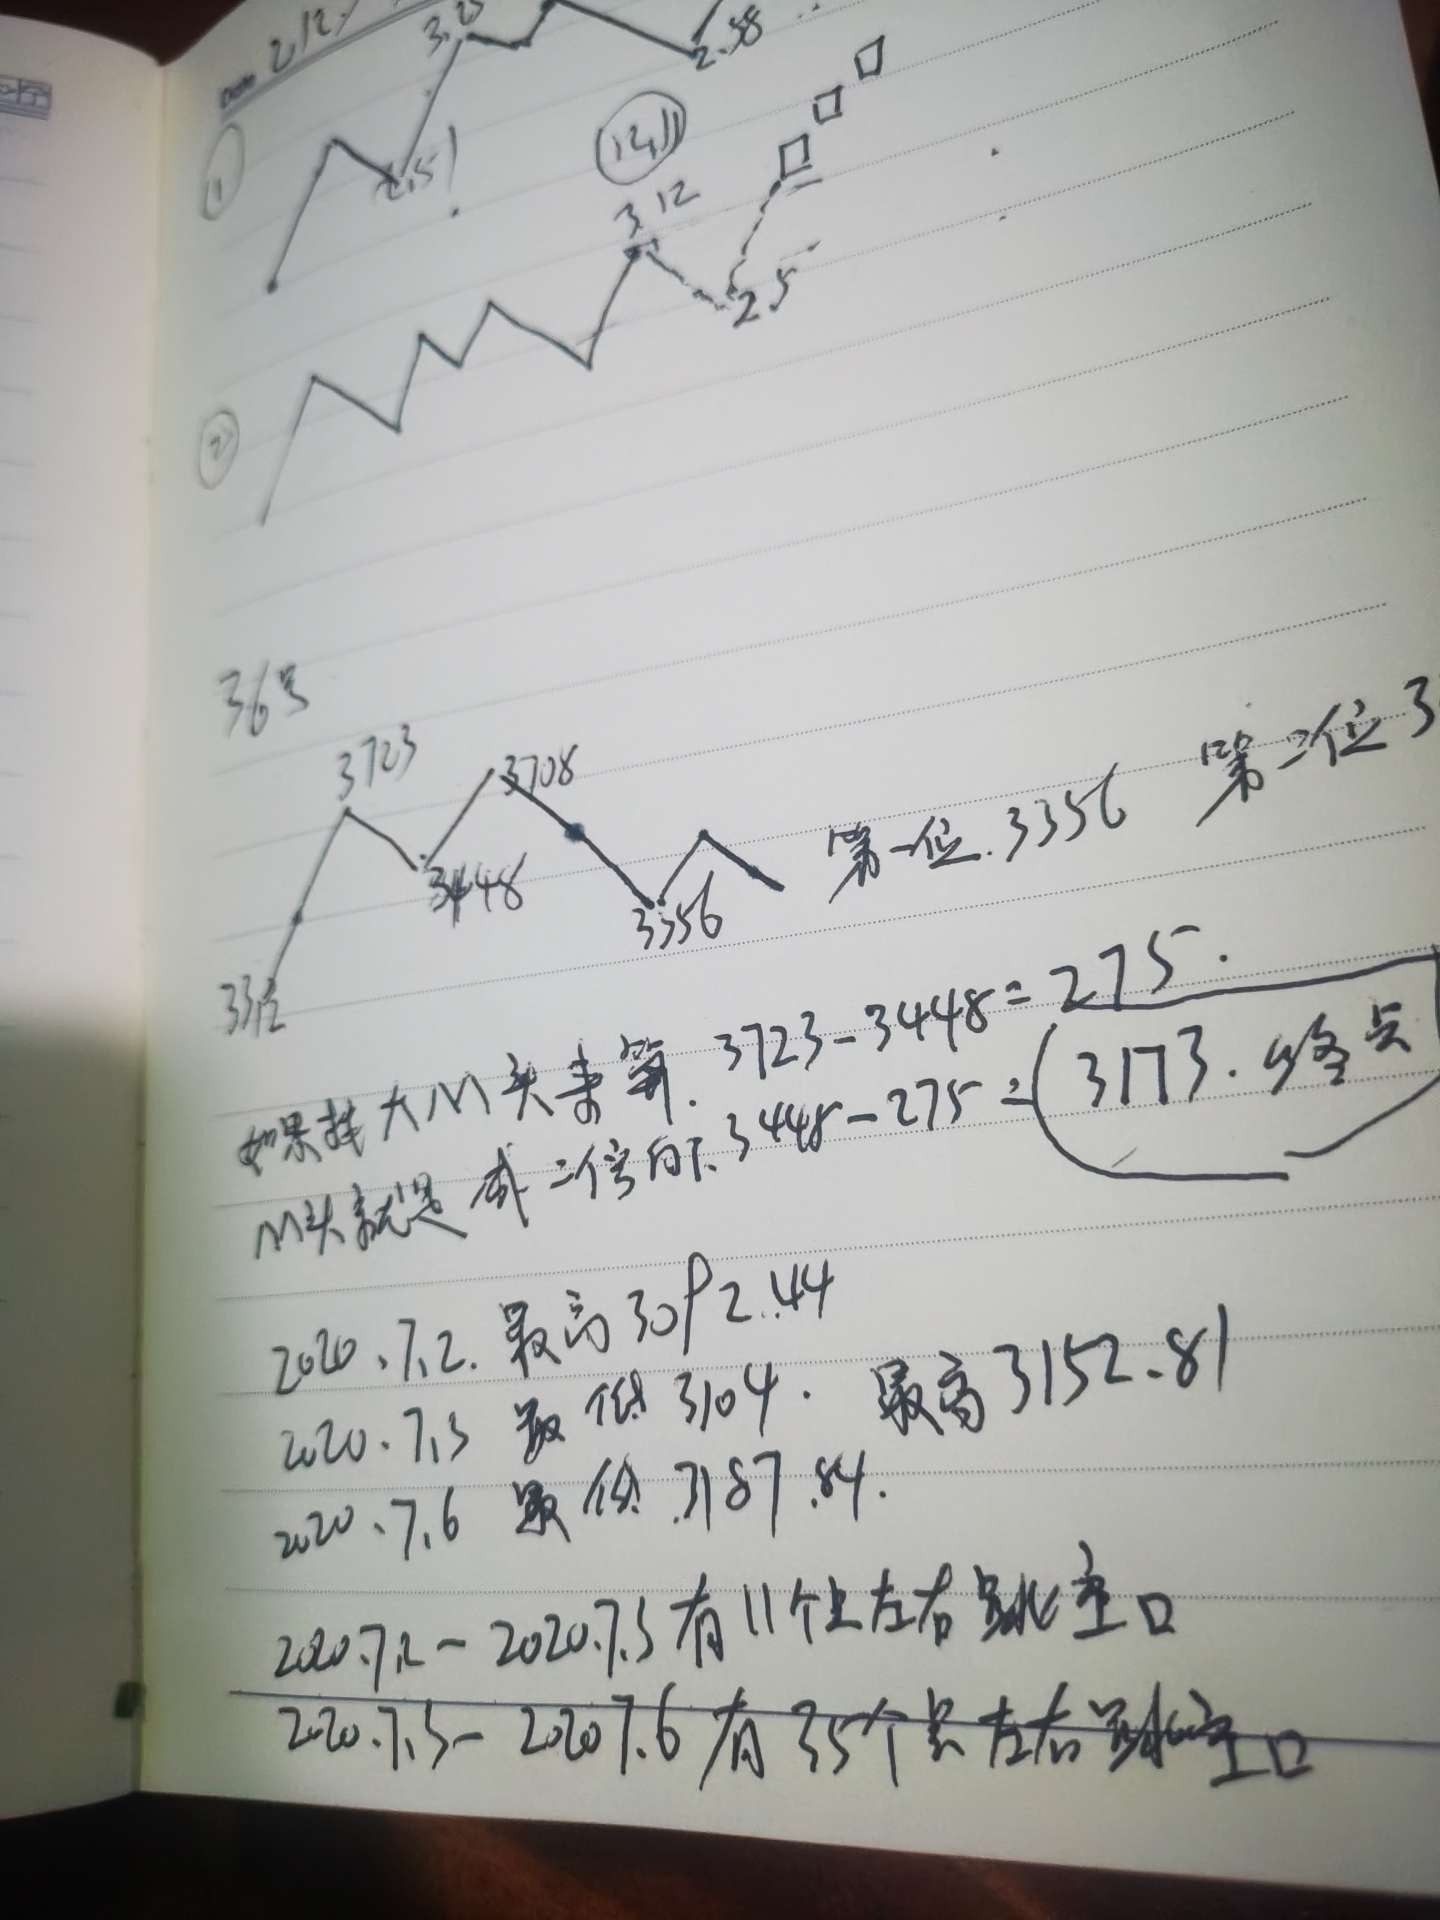 Date
①
2.51
2.58
12.11
3.12
2.5
②
36号
3723
3708
3448
3356
第一位.3356 第二位 3
如果按大M头来算.3723-3448=275.
M头就是 乘二倍向下.3448-275=3173.终点
2020.7.2.最高3092.44
2020.7.3 最低3104. 最高3152.81
2020.7.6 最低.3187.84.
2020.7.2-2020.7.3有11个点左右跳空口
2020.7.3-2020.7.6有35个点左右跳空口